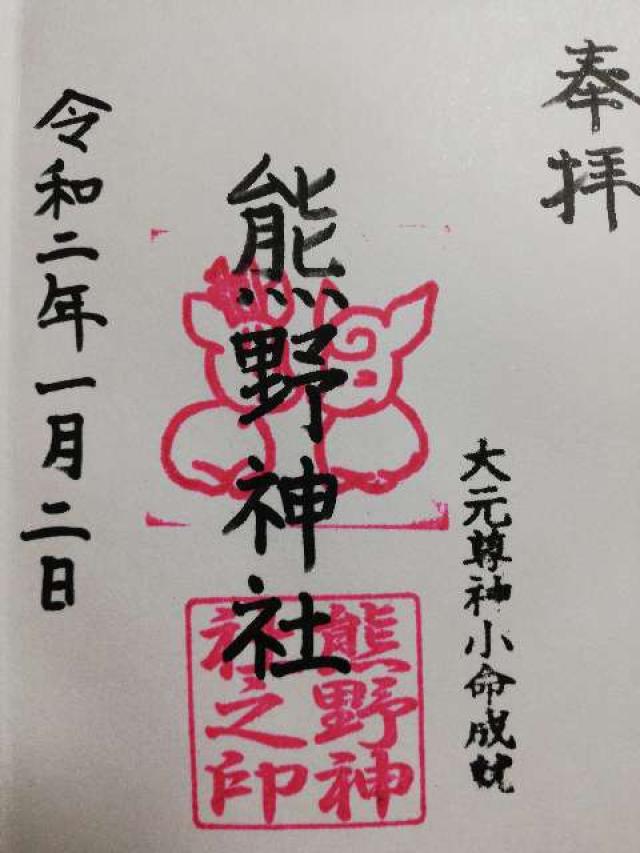 奉拝
大元尊神小命成就
熊野神社
熊野神社之印
令和二年一月二日